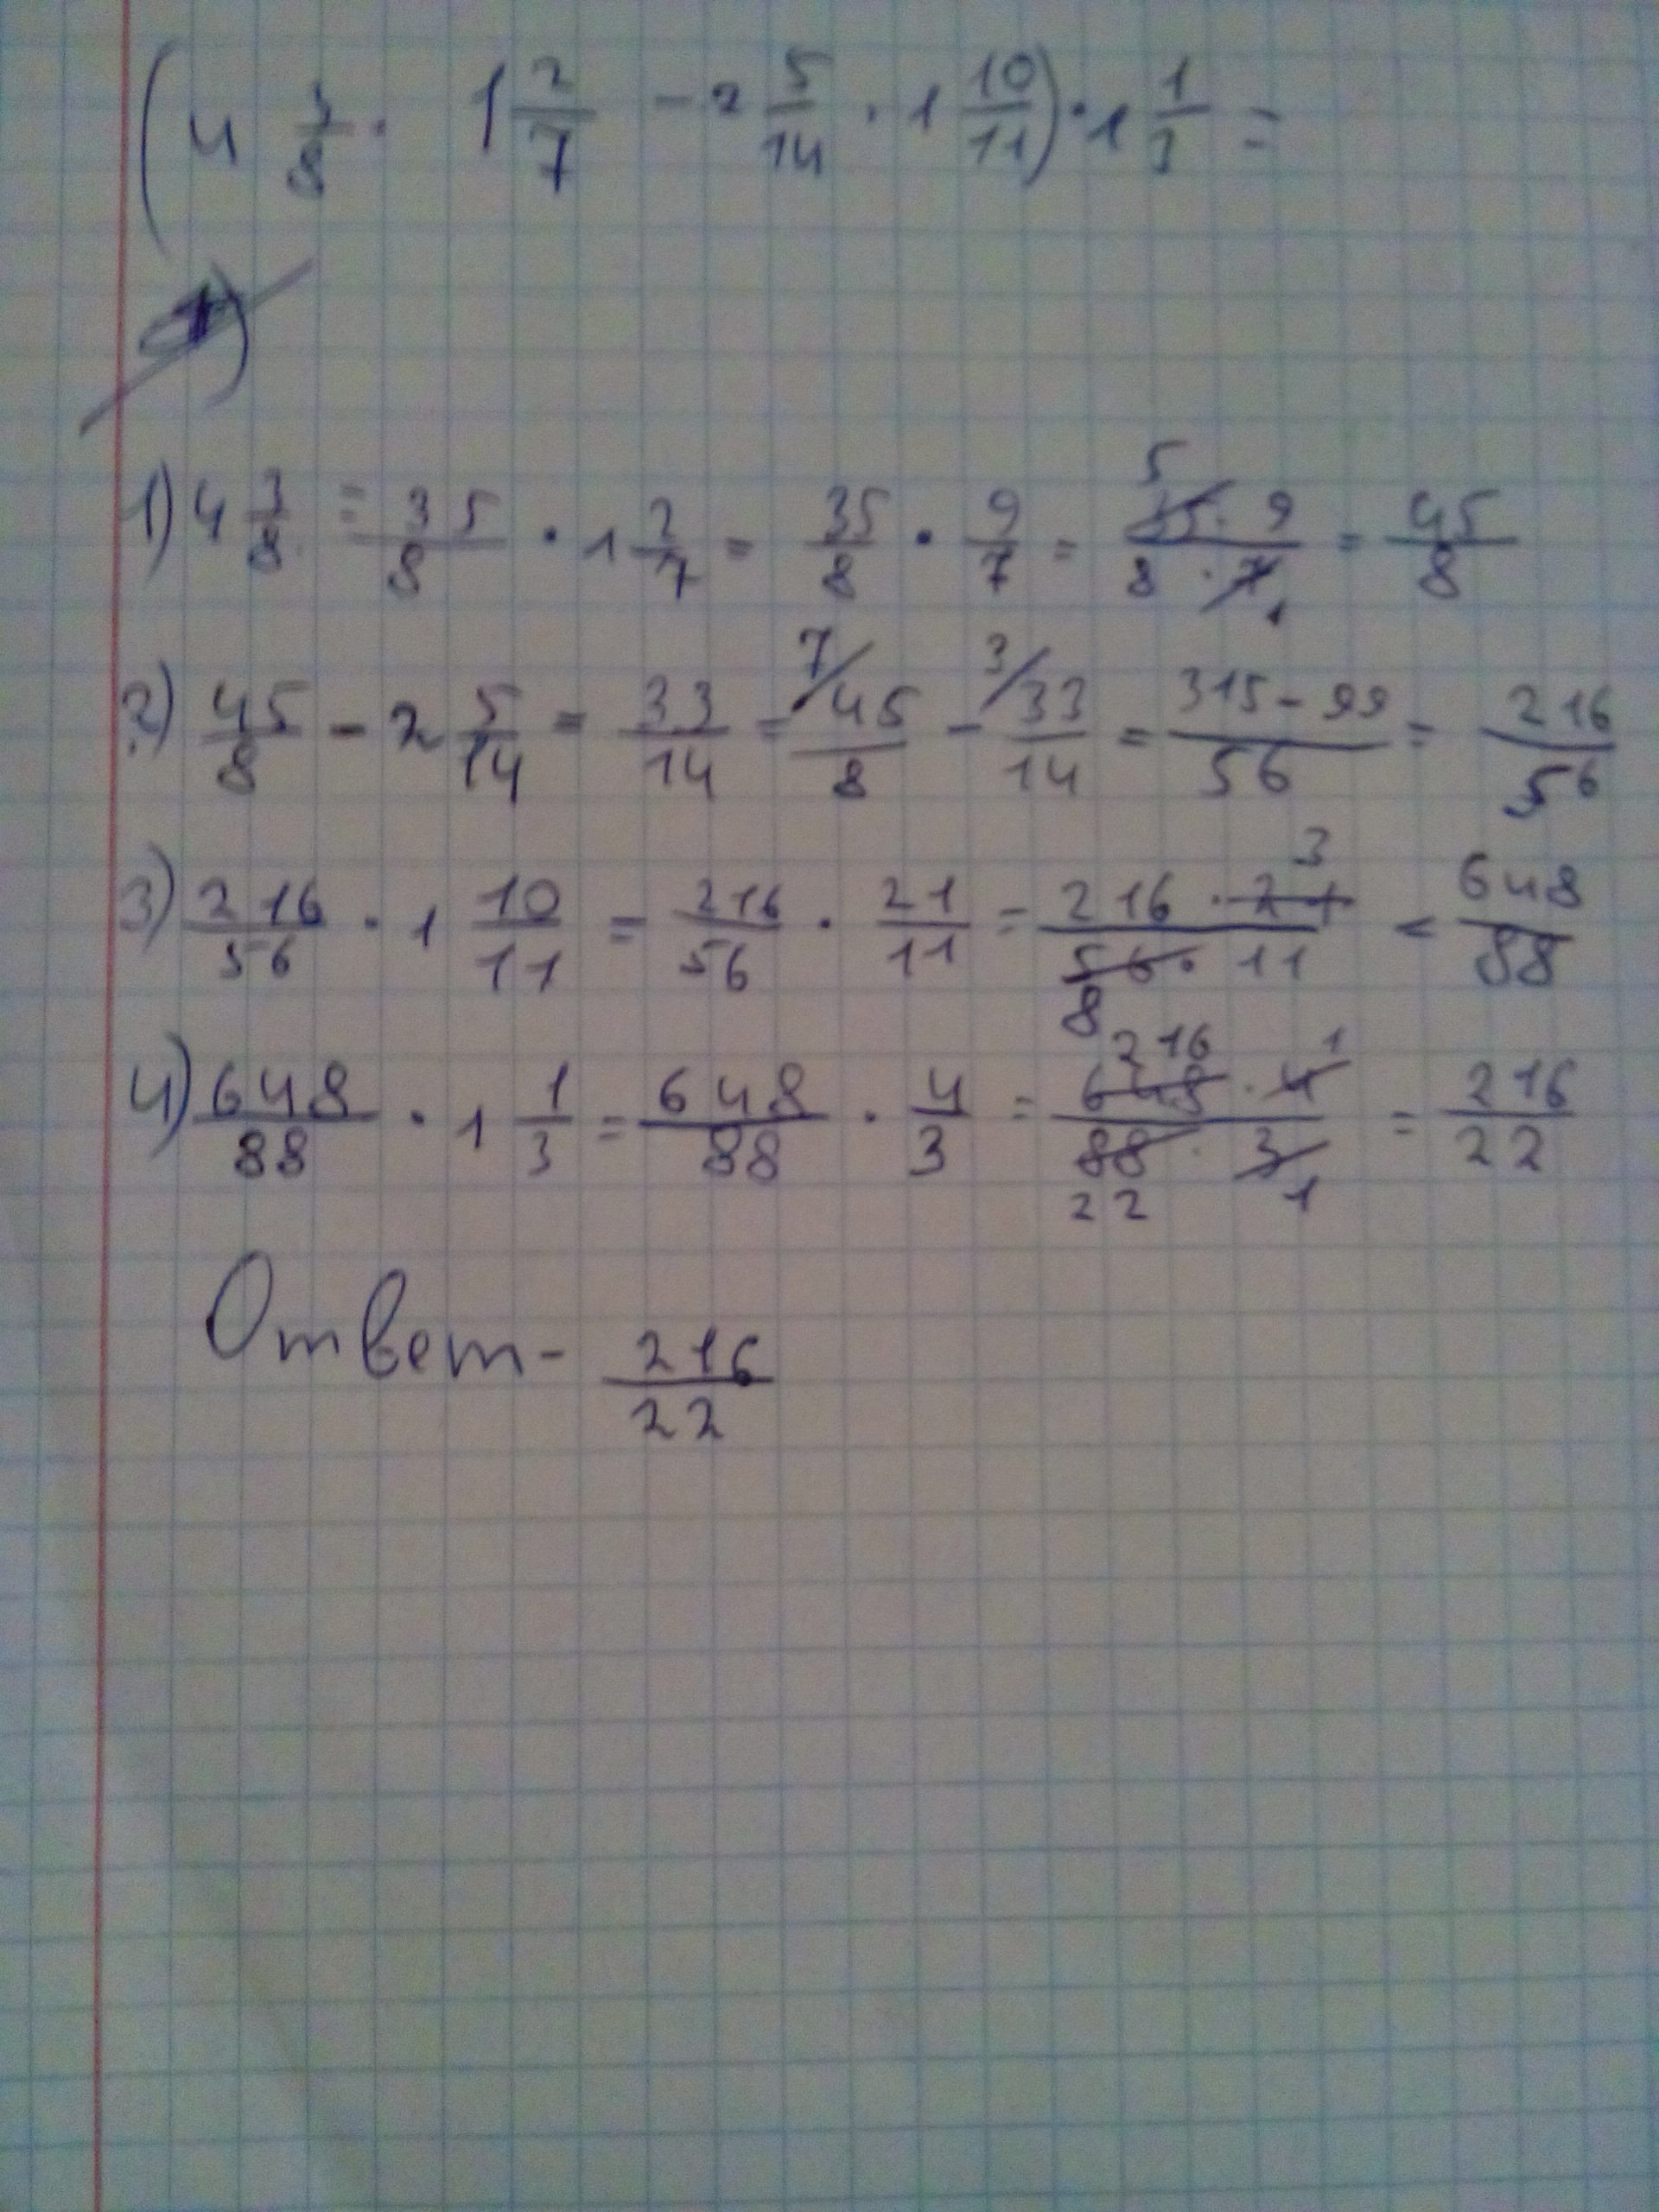 (4 3/8 · 1 2/7 - 2 5/14 · 1 10/11) · 1 1/3 =
1) 4 3/8 = 35/8 · 1 2/7 = 35/8 · 9/7 = 35 · 9 / 8 · 7 = 45/8
2) 45/8 - 2 5/14 = 33/14 = 7/ 45/8 - 3/ 33/14 = 315 - 99 / 56 = 216/56
3) 216/56 · 1 10/11 = 216/56 · 21/11 = 216 · 21 3 / 56 8 · 11 = 648/88
4) 648/88 · 1 1/3 = 648/88 · 4/3 = 648 216 · 4 1 / 88 22 · 3 1 = 216/22
Ответ - 216/22